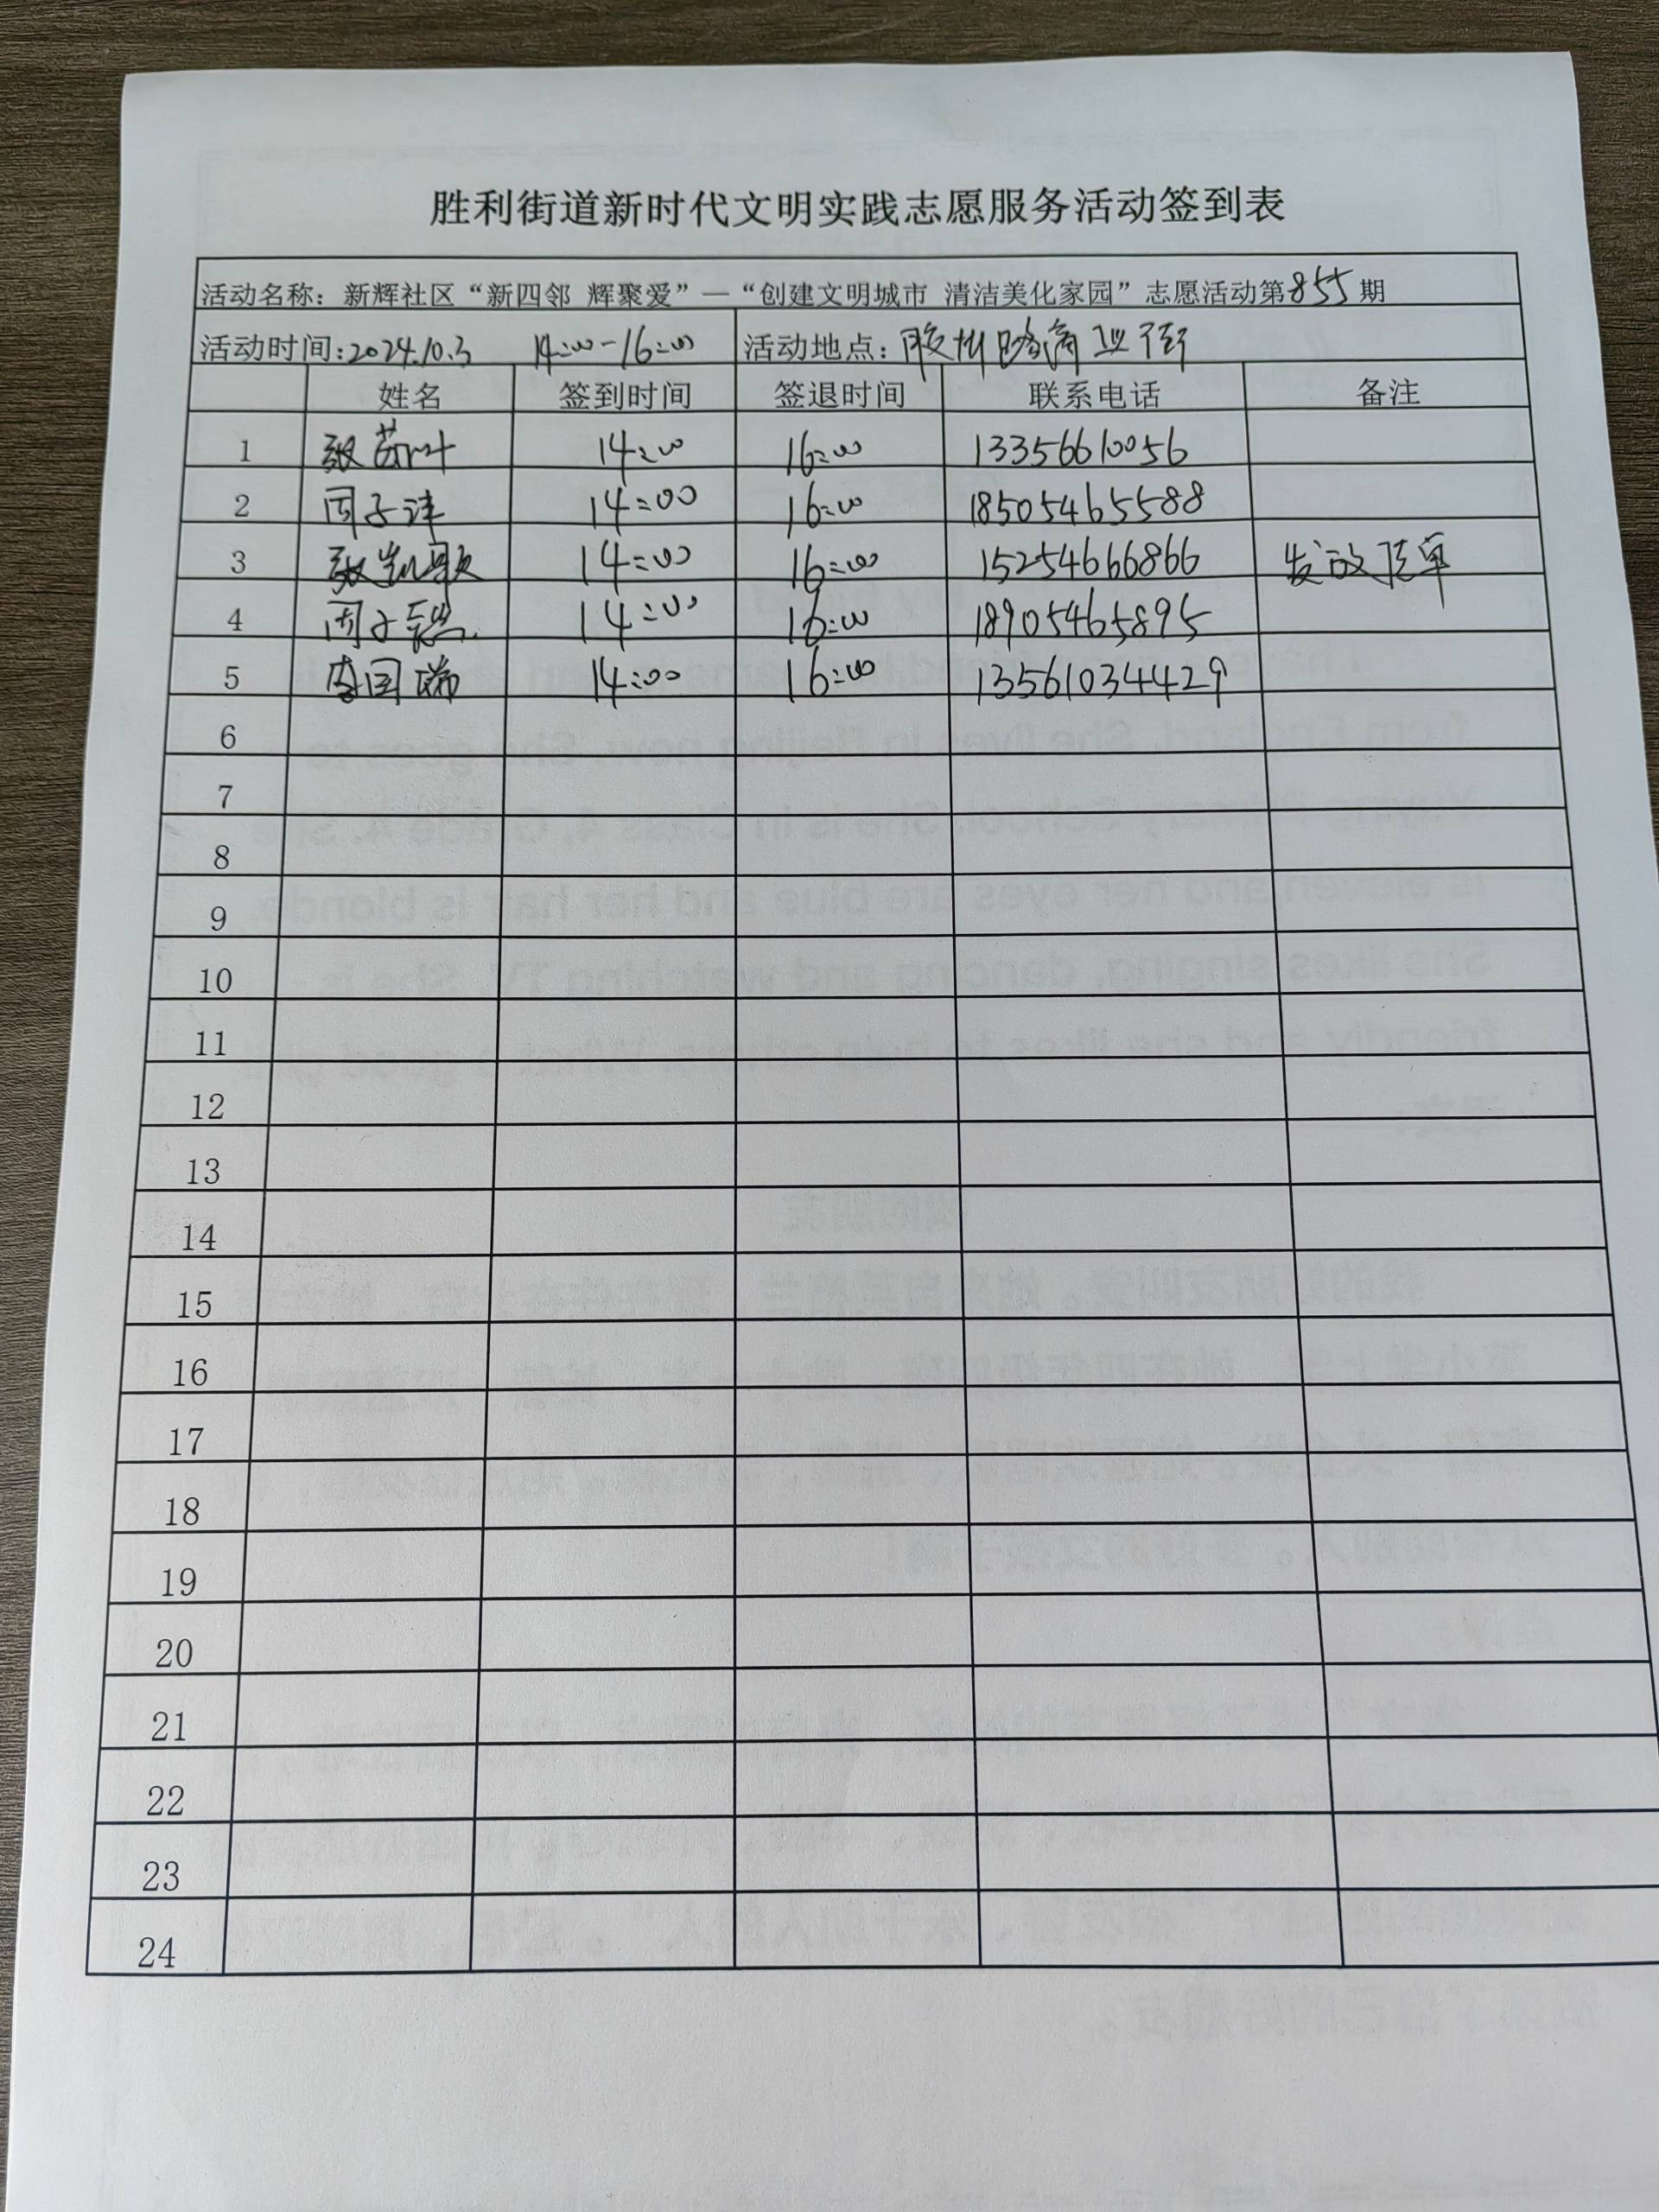 胜利街道新时代文明实践志愿服务活动签到表
活动名称：新辉社区“新四邻 辉聚爱”—“创建文明城市 清洁美化家园”志愿活动第855期
活动时间:2024.10.3 14:00-16:00 活动地点：胶州路商业街
姓名 签到时间 签退时间 联系电话 备注
1 张茹叶 14:00 16:00 13356610056
2 周子洋 14:00 16:00 18505465588
3 张凯歌 14:00 16:00 15254666866 发放传单
4 周子 14:00 16:00 18905465895
5 李国瑞 14:00 16:00 13561034429
6
7
8
9
10
11
12
13
14
15
16
17
18
19
20
21
22
23
24